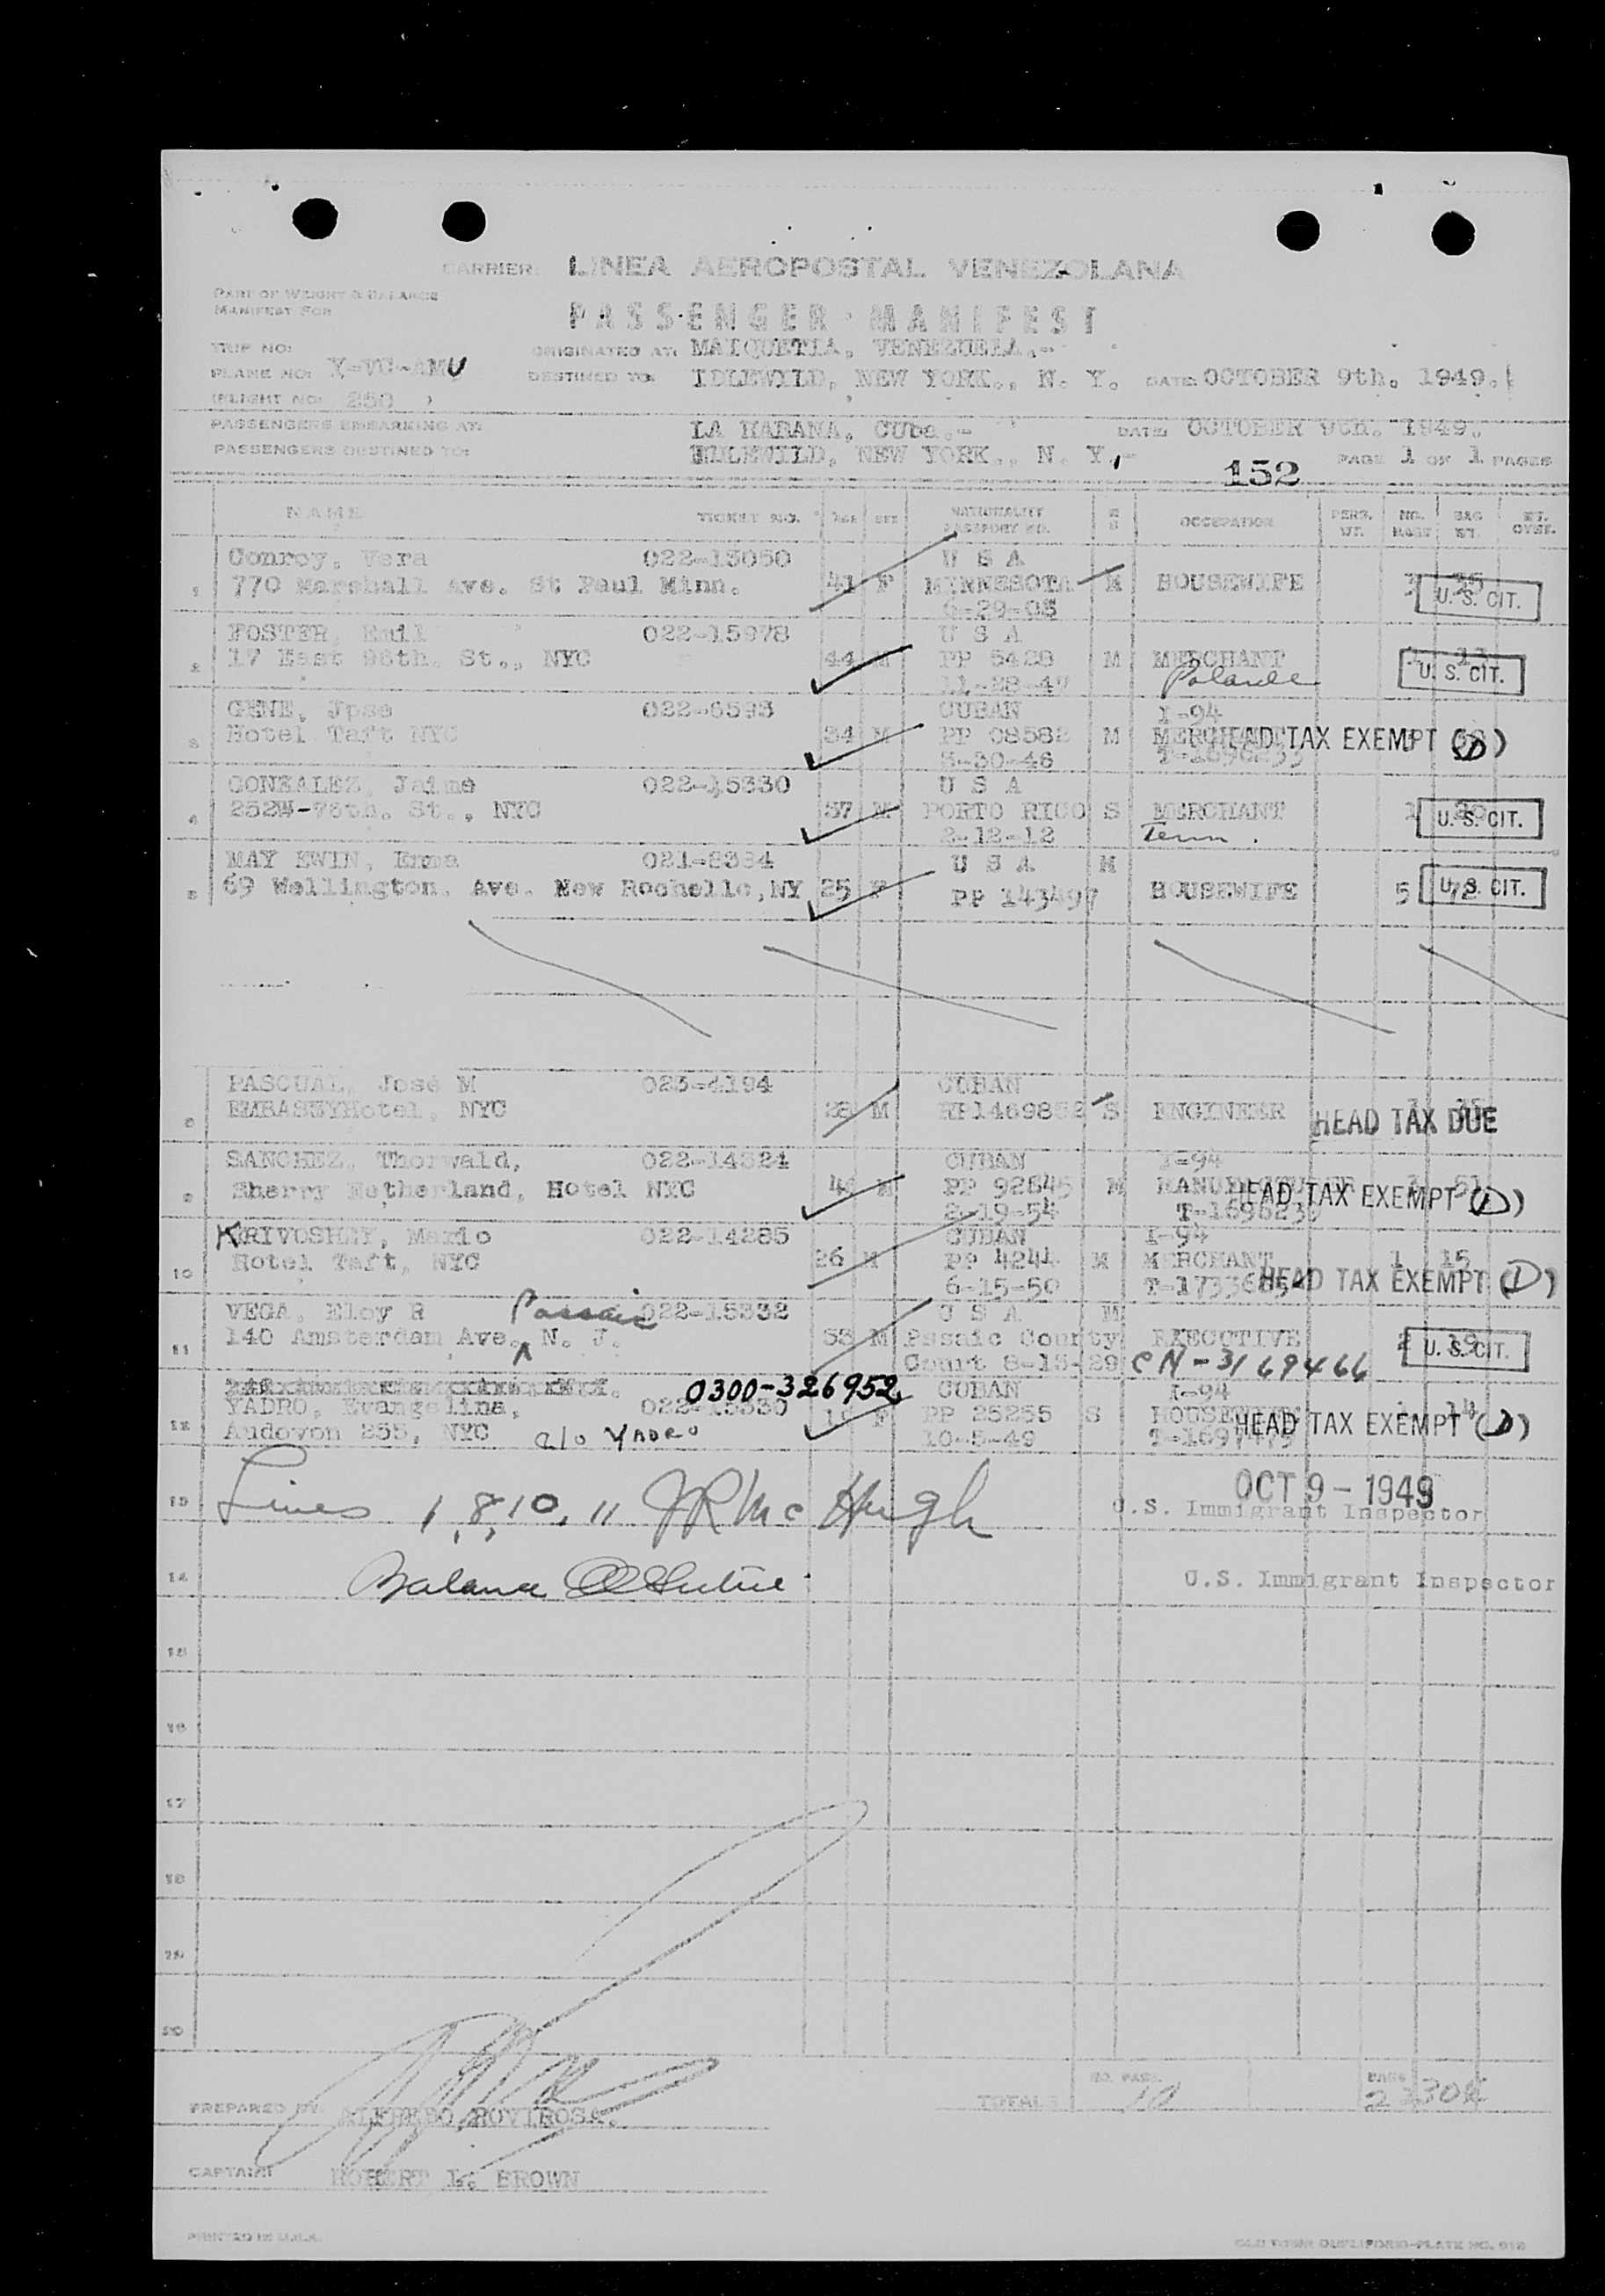 CARRIER: LINEA AEROPOSTAL VENEZOLANA
PART OF WEIGHT & BALANCE
MANIFEST FOR
PASSENGER MANIFEST
TRIP NO:
ORIGINATED AT: MAIQUETIA, VENEZUELA.-
PLANE NO: Y-VC-AMU
DESTINED TO: IDLEWILD, NEW YORK., N. Y. DATE: OCTOBER 9th. 1949.
(FLIGHT NO: 250 )
PASSENGERS EMBARKING AT: LA HABANA, Cuba.- DATE: OCTOBER 9th. 1949.
PASSENGERS DESTINED TO: IDLEWILD, NEW YORK., N. Y.,- 152 PAGE 1 OF 1 PAGES
NAME TICKET NO. AGE SEX NATIONALITY PASSPORT NO. OCCUPATION PERS. WT. NO. BAGS BAG WT.
Conroy, Vera 022-13050 U S A
1 770 Marshall Ave. St Paul Minn. 41 F MINNESOTA M HOUSEWIFE U. S. CIT.
6-29-08
FOSTER, Emil 022-15978 U S A
2 17 East 96th. St., NYC 44 M PP 5428 M MERCHANT U. S. CIT.
11-28-47
GENE, Jpse 022-6593 CUBAN I-94
3 Hotel Taft NYC 34 M PP 08582 M HEAD TAX EXEMPT (D)
3-30-46
GONZALEZ, Jaime 022-15330 U S A
4 252W-76th. St., NYC 37 M PORTO RICO S MERCHANT 1 U. S. CIT.
2-12-12 Term.
MAY EWIN, Emma 021-8384 U S A M
5 69 Wellington. Ave. New Rochelle, NY 25 F PP 143497 HOUSEWIFE 5 U. S. CIT.
PASCUAL, José M 023-4194 CUBAN
EMBASSYHotel, NYC 28 M S ENGINEER HEAD TAX DUE
SANCHEZ, Thorwald, 022-14324 CUBAN I-94
Sherry Netherland, Hotel NYC M PP 92645 M HEAD TAX EXEMPT (D)
2-19-54
KRIVOSHEY, Mario 022-14285 CUBAN I-94
10 Hotel Taft, NYC 26 M PP 4244 M MERCHANT 1 15
6-15-50 HEAD TAX EXEMPT (D)
VEGA, Eloy R Passaic 022-15332 U S A M
11 140 Amsterdam Ave. N. J. 53 M Pssaic County EXECCTIVE 2 U. S. CIT.
Court 8-15-29 CN-3169466
0300-326952 CUBAN I-94
YADRO, Evangelina, F PP 25255 S HEAD TAX EXEMPT (D)
12 Audovon 255, NYC a/o YADRO 10-5-49
OCT 9 - 1949
13 Lines 1, 8, 10, 11 JR McHugh U.S. Immigrant Inspector
14 Balance U.S. Immigrant Inspector
15
16
17
18
19
20
TOTALS NO. PASS. 10 BAGS
PREPARED BY ALFREDO ROVIROSA.
CAPTAIN ROBERT L. BROWN
PRINTED IN U.S.A.